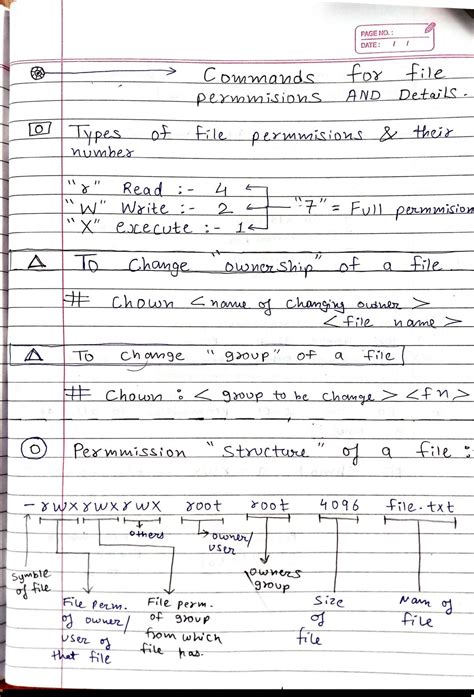 PAGE NO.:
DATE: / /
Commands for file
permmisions AND Details.
Types of file permmisions & their
number
"r" Read :- 4
"W" Write :- 2 "7" = Full permmision
"X" execute :- 1
To Change "ownership" of a file
# Chown <name of changing owner>
<file name>
To change "group" of a file
# Chown : < group to be change > <fn>
Permmission "structure" of a file :
-rwxrwxrwx root root 4096 file.txt
others
owner/
user
owners
group
Symble
of file
File perm.
of owner/
user of
that file
File perm.
of group
from which
file has.
Size
of
file
Nam of
file